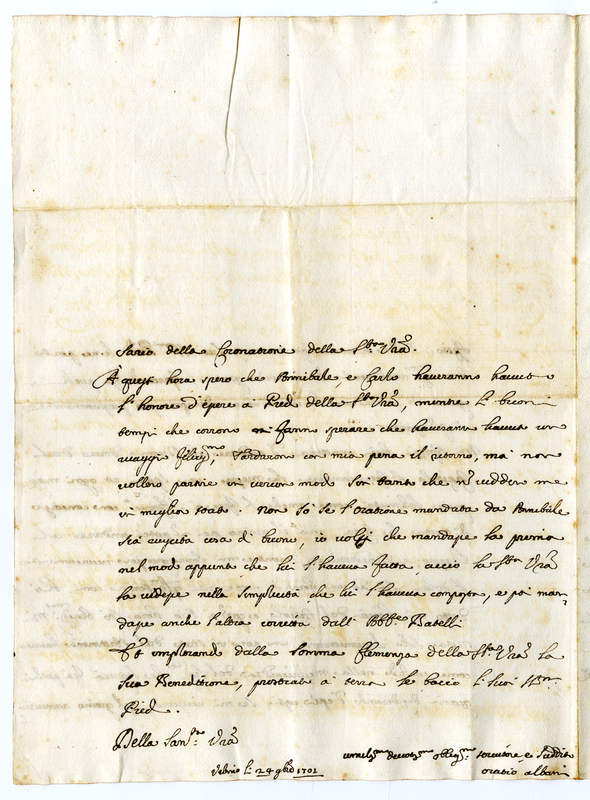 sario della Coronatione della S.tà Vrã.
A quest hora spero che Annibale, e Carlo haveranno havuto
l'honore d'essere ai Piedi della S.tà Vrã, mentre li buoni
tempi che corrono fanno sperare che haveranno havuto un
viaggio feliss.mo; Tardarono con mia pena il ritorno, ma non
vollero partire in verun modo sin tanto che nõ viddero me
in miglior stato. Non so se l'oratione mandata da Annibale
sia riuscita cosa di buono, io volsi che mandasse la prima
nel modo appunto che lui l'haveva fatta, acciò la S.tà Vrã
la vedesse nella simplicità che lui l'haveva composta, e poi man-
dasse anche l'altra corretta dall' Abb.te Batelli.
Et implorando dalla somma Clemenza della S.tà Vrã la
sua Benedittione, prostrato a terra le bacio li suoi SS.mi
Piedi.
Della San.tà Vrã
umiliss.mo devotiss.mo obligss.mo servitore, e suddito
Urbino li 24 9bre 1701
oratio albani